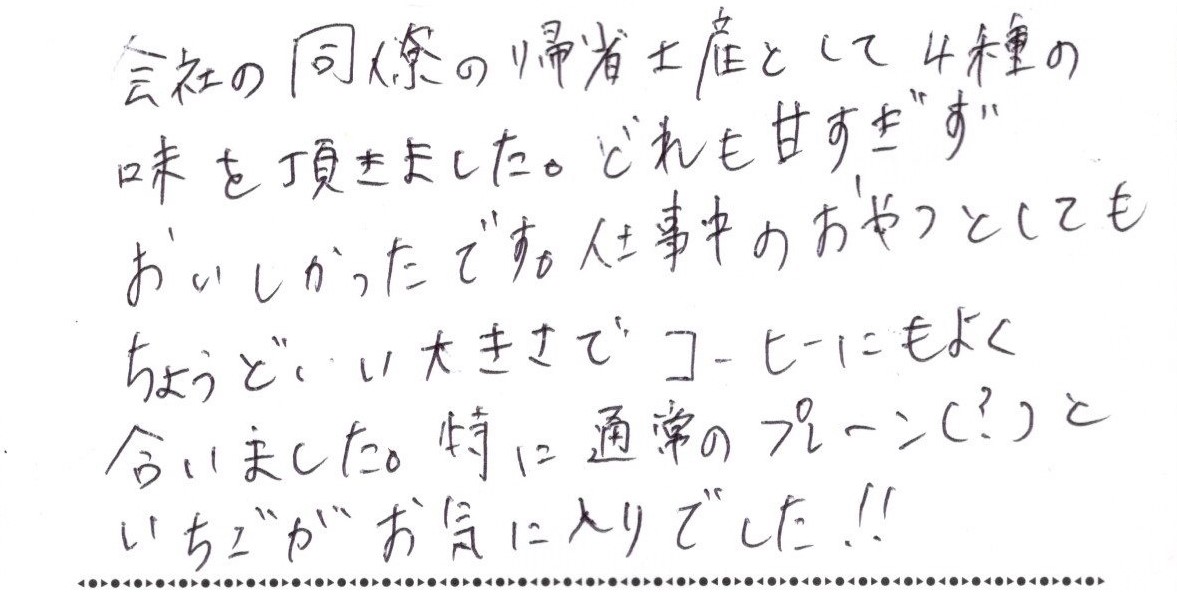 会社の同僚の帰省土産として4種の
味を頂きました。どれも甘すぎず
おいしかったです。仕事中のおやつとしても
ちょうどいい大きさでコーヒーにもよく
合いました。特に通常のプレーン(?)と
いちごがお気に入りでした!!